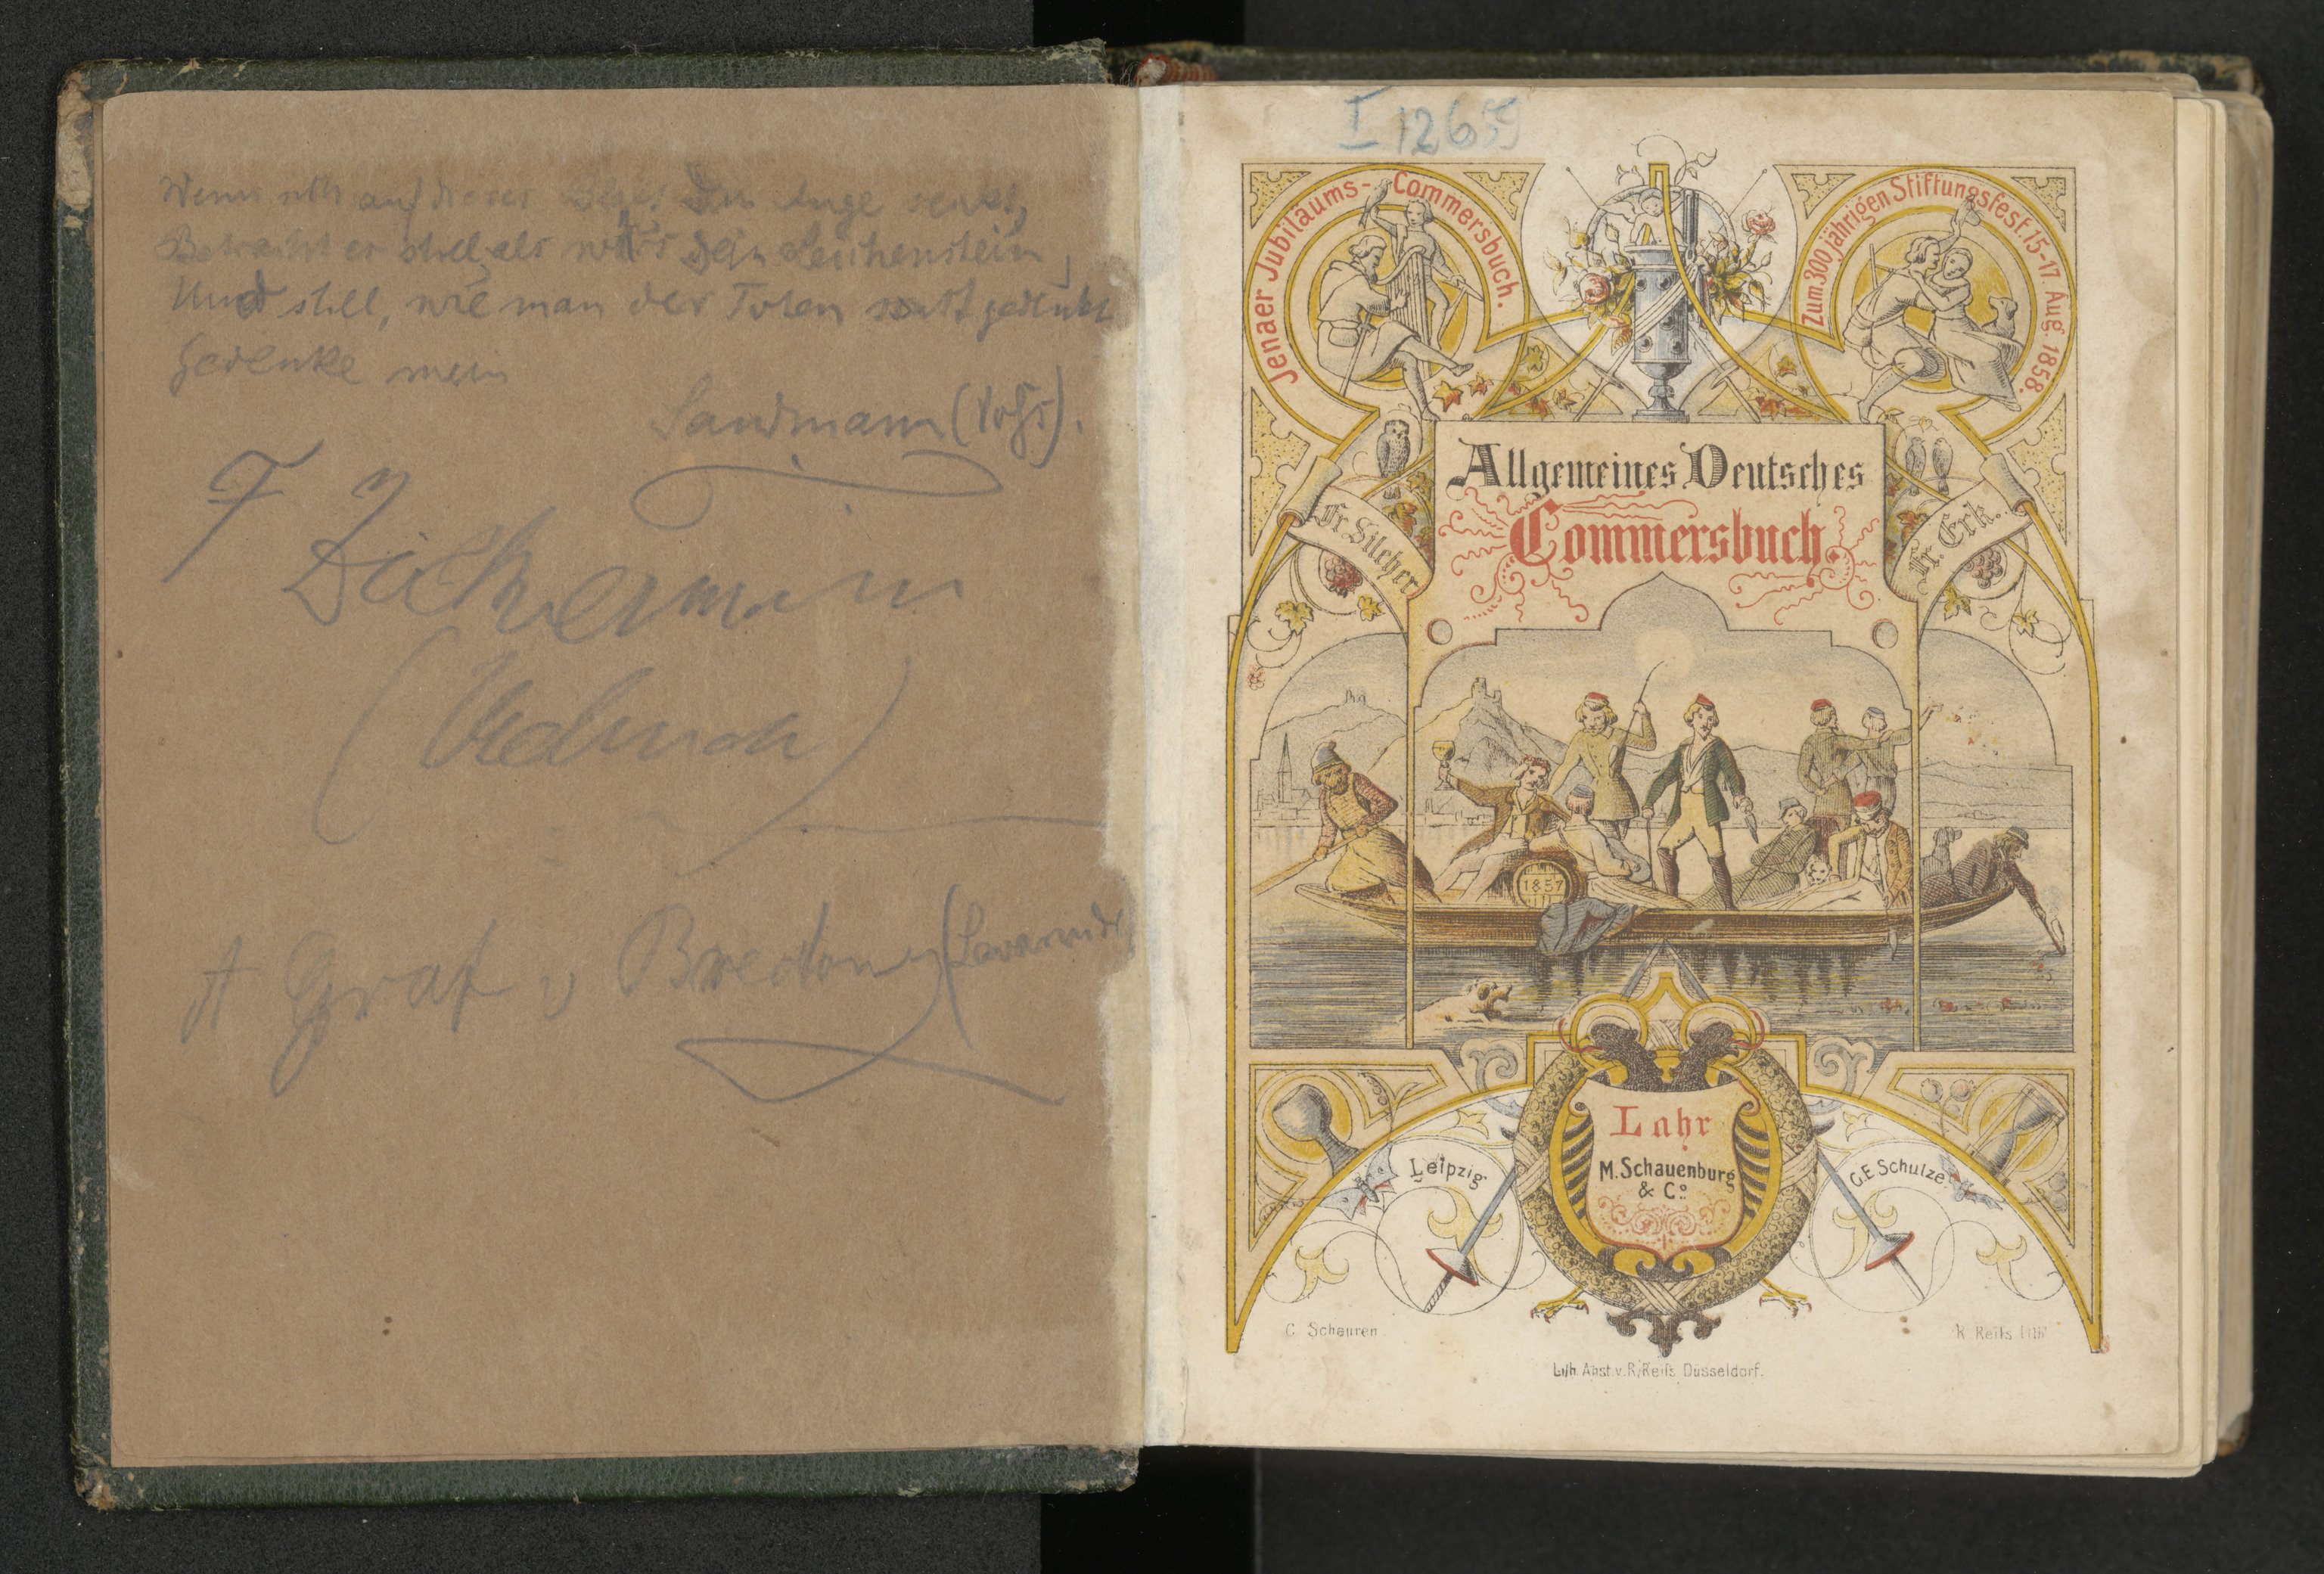 Wenn sich auf dieses Blatt Dein Auge senkt,
Betracht es still, als wär's Dein Leichenstein,
Und still, wie man der Toten gedenkt
Gedenke mein
Sandmann
F
A Graf v Bredow
I 12659
Jenaer Jubiläums-Commersbuch.
Zum 300 jährigen Stiftungsfest 15-17. Aug. 1858.
Allgemeines Deutsches
Commersbuch.
Fr. Silcher
Fr. Erk.
1857
Lahr
M. Schauenburg
& Co.
Leipzig
C.E Schulze.
C. Scheuren
R. Reifs lith
Lith. Anst. v. R. Reifs. Düsseldorf.